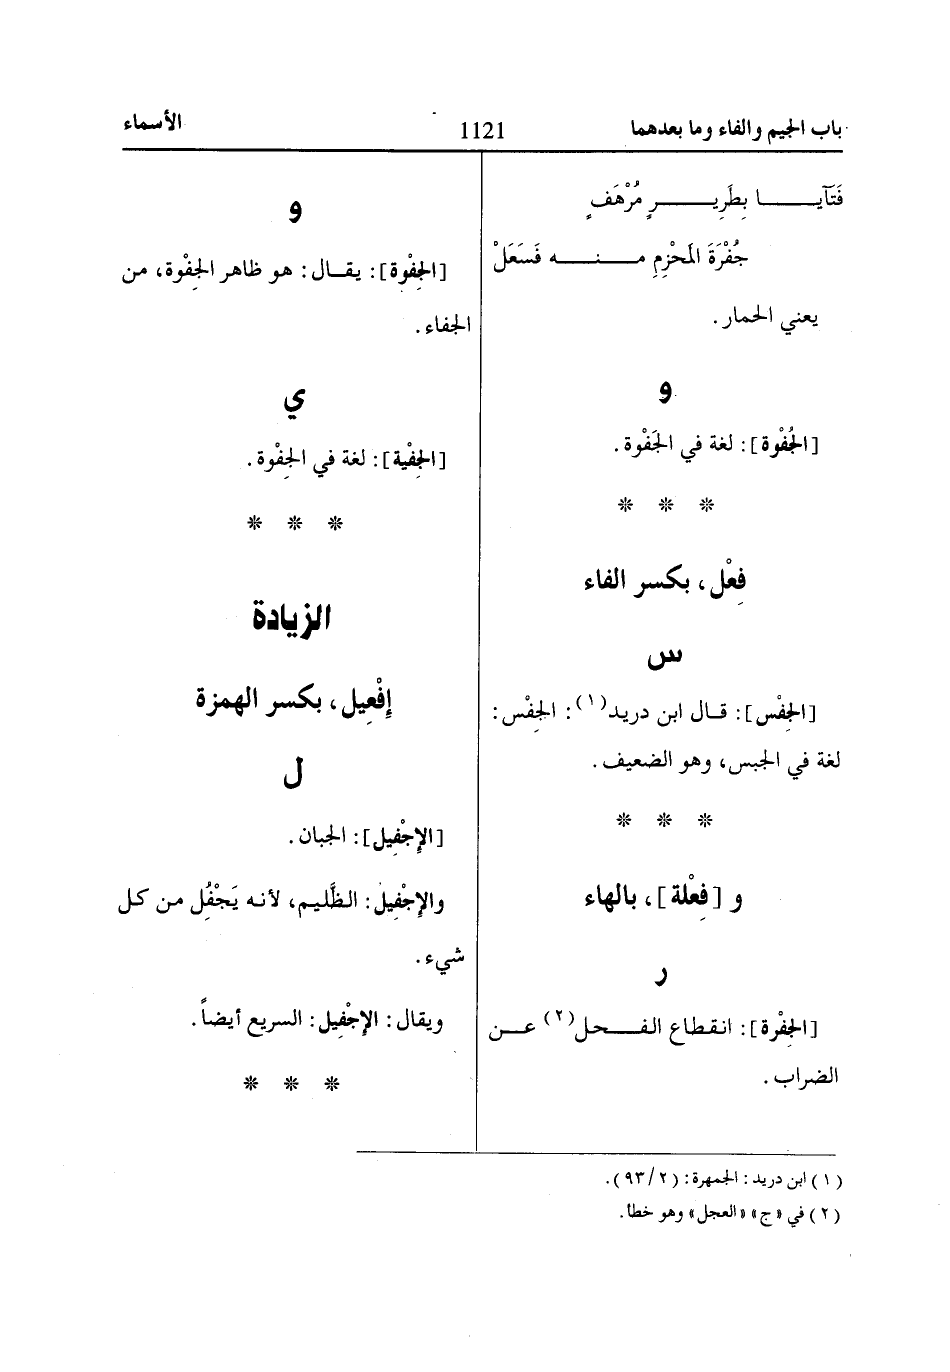 باب الجيم والفاء وما بعدهما
1121
الأسماء
فَتَآيـــا بِطَرِيـــرٍ مُرْهَفٍ
جُفْرَةَ المَحْزِمِ مـــنـــه فَسَعَلْ
يعني الحمار.
و
[الجُفْوة]: لغة في الجَفْوة.
* * *
فِعْل، بكسر الفاء
س
[الجِفْس]: قـال ابن دريد(١): الجِفْس:
لغة في الجبس، وهو الضعيف.
* * *
و [فِعْلة]، بالهاء
ر
[الجِفْرة]: انقطاع الفـــحل(٢) عـــن
الضراب.
و
[الجِفْوة]: يقـال: هو ظاهر الجِفْوة، من
الجفاء.
ي
[الجِفْية]: لغة في الجِفْوة.
* * *
الزيادة
إِفْعِيل، بكسر الهمزة
ل
[الإِجْفِيل]: الجبان.
والإِجْفِيل: الظَّليم، لأنه يَجْفُل من كل
شيء.
ويقال: الإِجْفِيل: السريع أيضاً.
* * *
(١) ابن دريد: الجمهرة: (٢/ ٩٣).
(٢) في «ج» «العجل» وهو خطأ.